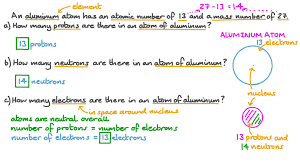 element
27-13=14
An aluminum atom has an atomic number of 13 and a mass number of 27.
a) How many protons are there in an atom of aluminum?
13 protons
ALUMINIUM ATOM
13 electrons
b) How many neutrons are there in an atom of aluminum?
14 neutrons
nucleus
c) How many electrons are there in an atom of aluminum?
in space around nucleus
atoms are neutral overall
number of protons = number of electrons
number of electrons = 13 electrons
13 protons and
14 neutrons